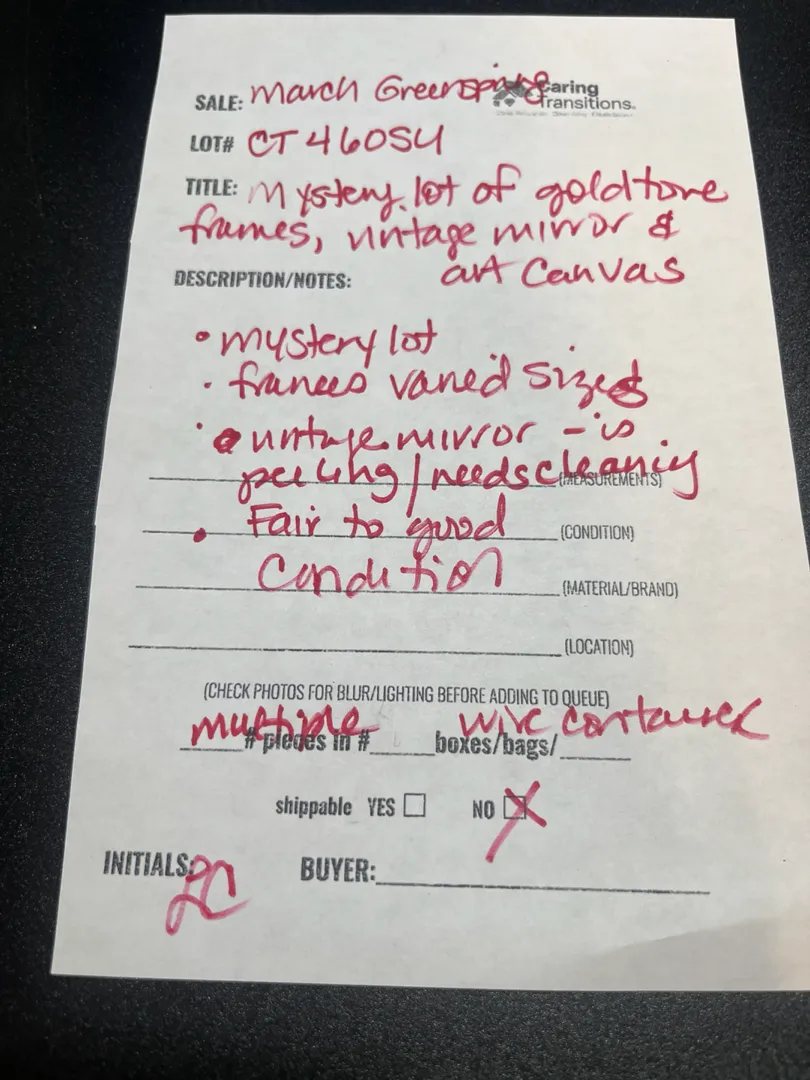 SALE: March Greenspring
Caring Transitions.
LOT# CT46054
TITLE: Mystery lot of goldtone
frames, vintage mirror &
art canvas
DESCRIPTION/NOTES:
• mystery lot
• frames varied sizes
• vintage mirror – is
peeling/needs cleaning
(MEASUREMENTS)
• Fair to good
(CONDITION)
Condition
(MATERIAL/BRAND)
(LOCATION)
(CHECK PHOTOS FOR BLUR/LIGHTING BEFORE ADDING TO QUEUE)
multiple wire container
# pieces in # boxes/bags/
shippable YES NO X
INITIALS: LC BUYER: